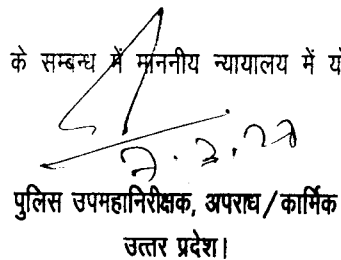 के सम्बन्ध में माननीय न्यायालय में
पुलिस उपमहानिरीक्षक, अपराध/कार्मिक
उत्तर प्रदेश।